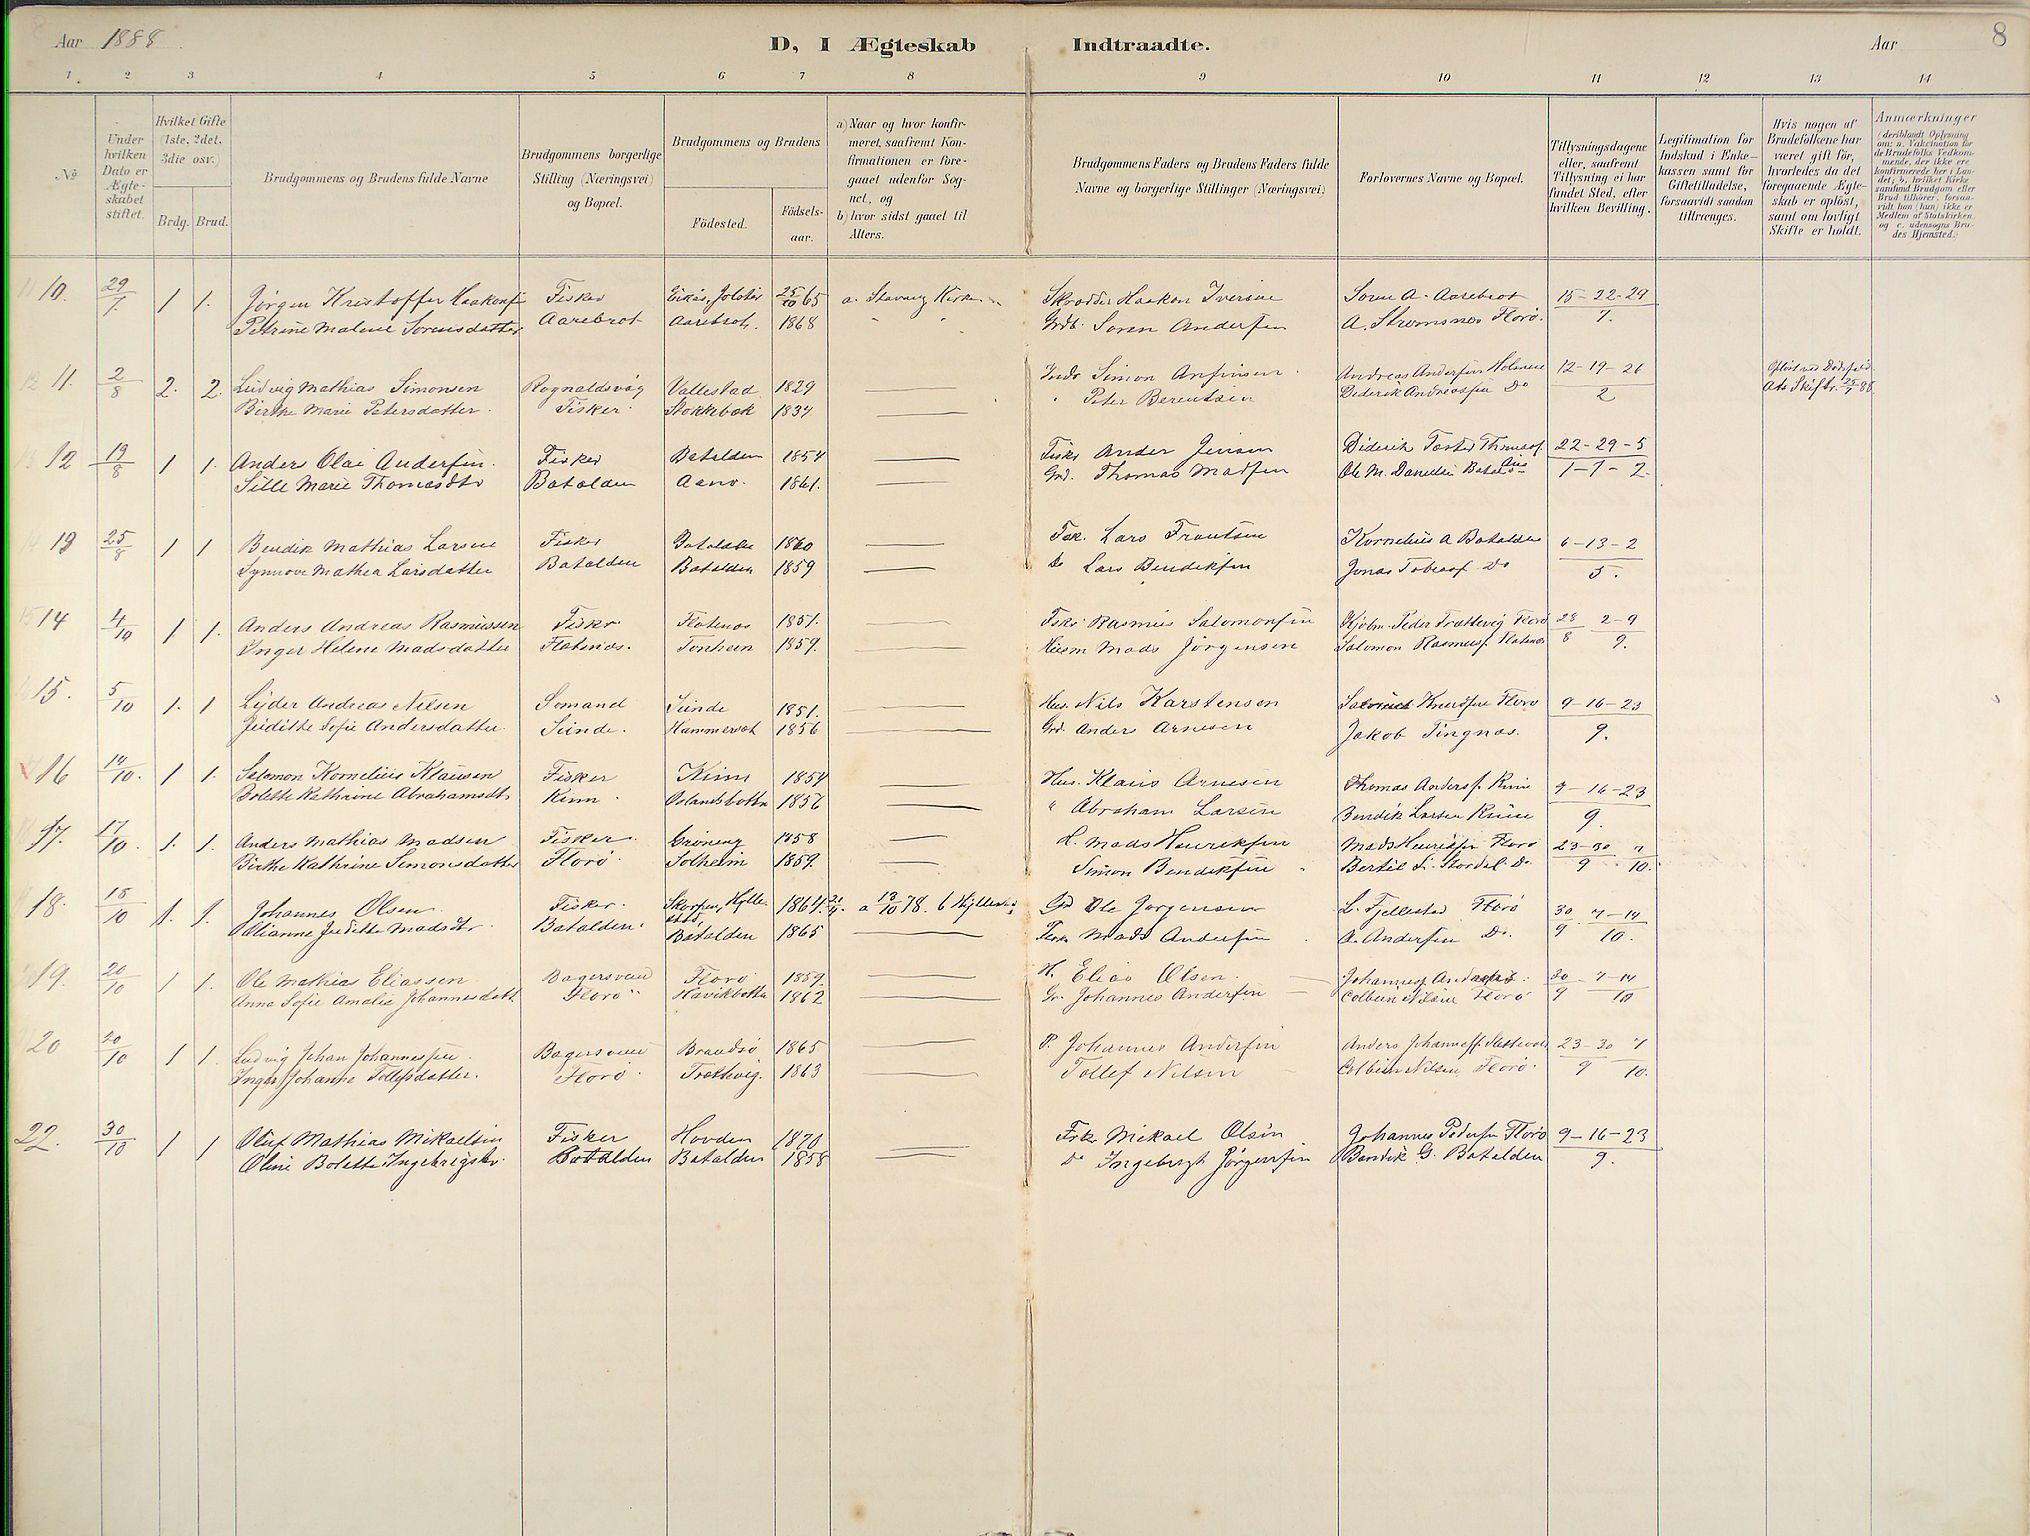 Aar 1888
D, I Ægteskab Indtraadte.
Aar
8
1 2 3 4 5 6 7 8 9 10 11 12 13 14
No
Under hvilken Dato er Ægte-skabet stiftet.
Hvilket Gifte (1ste, 2det, 3die osv.)
Brdg. Brud.
Brudgommens og Brudens fulde Navne
Brudgommens borgerlige Stilling (Næringsvei) og Bopæl.
Brudgommens og Brudens
Fødested.
Fødsels-aar.
a) Naar og hvor konfir-meret, saafremt Kon-firmationen er fore-gaaet udenfor Sog-net, og
b) hvor sidst gaaet til Alters.
Brudgommens Faders og Brudens Faders fulde Navne og borgerlige Stillinger (Næringsvei)
Forlovernes Navne og Bopæl.
Tillysningsdagene eller, saafremt Tillysning ei har fundet Sted, efter hvilken Bevilling.
Legitimation for Indskud i Enke-kassen samt for Giftetilladelse, forsaavidt saadan tiltrænges.
Hvis nogen af Brudefolkene har været gift før, hvorledes da det foregaaende Ægte-skab er opløst, samt om lovligt Skifte er holdt.
Anmærkninger (deriblandt Oplysning om: a. Vakcination for de Brudefolks Vedkom-mende, der ikke ere konfirmerede her i Lan-det; b. hvilket Kirke-samfund Brudgom eller Brud tilhører, forsaa-vidt han (hun) ikke er Medlem af Statskirken, og c. udensogns Bru-des Hjemsted.)
10. 29/7. 1 1. Jørgen Kristoffer Haakonss Fisker Eikås, Jølster 25/10 65 a. Stavang Kirke Skrædder Haakon Iversen Soren A. Aarebrot 15-22-29
Petrine Malene Sorensdatter Aarebrot Aarebrot. 1868 " " Grdb. Soren Anderssen A. Stromsnes Florø. 7.
11. 2/8 2. 2. Ludvig Mathias Simonsen Rognaldsvåg Vallestad 1829 Simon Anfinsen Andreas Anderssen 12-19-26
Birthe Marie Petersdatter. Fisker. Stokkebøk 1834 " Peter Berentsen Diderik Andreassen Do 2
12 19/8 1 1. Anders Olai Anderssen. Fisker Batalden 1854 Fisker Ander Jensen Diderik 22-29-5
Sille Marie Thomasdtr Batalden Aano. 1861. Grd. Thomas Madssen Ole M. Danielsen 1-1-2.
13 25/8 1 1 Bendik Mathias Larsen Fisker Batalden 1860 Fsk. Lars Frantsen Kornelius A Batalden 6-13-2
Synnove Mathea Larsdatter Batalden Batalden 1859 Do Lars Bendikssen Jonas Tobiass. Do 5.
14 4/10 1 1. Anders Andreas Rasmussen Fisker Flatenes 1851. Fisker Rasmus Salomonssen Kjøbm. Peder Trættevig Florø 28 2-9
Inger Helene Madsdatter Flatenes. Tonheim 1859. Husm Mads Jørgensen Salomon Rasmuss. Flatenes 8 9.
15. 5/10 1. 1 Lyder Andreas Nilsen Somand Sunde 1851. Hus. Nils Karstensen Knudssen Florø 9-16-23
Juditthe Sofie Andersdatter. Sunde. Hammerset 1856 Grd. Anders Arnesen Jakob Tingnes. 9.
16 14/10. 1 1. Salomon Kornelius Klausen Fisker Kinn 1854 Hus. Klaus Arnesen Thomas Anderss. Kinn 9-16-23
Bolette Kathrine Abrahamsdtr Kinn. Oslandsbotten 1856 " Abraham Larsen Bendik Larsen Kinn 9.
17. 17/10. 1. 1. Anders Mathias Madsen Fisker. Grøning 1858 H. Mads Henrikssen Mads Henrikssen Florø 23-30 7
Birthe Kathrine Simonsdatter Florø. Solheim 1859. Simon Bendikssen " Bertil S. Stordal Do. 9 10.
18. 18/10 1. 1. Johannes Olsen Fisker. Skorpen, Hyllestad, 1864. a 13/10 78. b Hyllestad Grd Ole Jorgensen L. Fjellestad Florø 30 7-14
Olianne Juditte Madsdtr. Batalden. Batalden 1865 Fisker Mads Anderssen A. Anderssen Do. 9 10.
19. 20/10 1 1. Ole Mathias Eliassen Bagersvend Florø 1859. H. Elias Olsen. Johannes 30 7-14
Anna Sofie Amalie Johannesdatt. Florø Havikbotten 1862 Gr. Johannes Anderssen Colbein Nilsen Florø 9 10
20 20/10 1 1. Ludvig Johan Johannessen Bagersvend Brandsø 1865 P. Johannes Anderssen Anders Johanness. 23-30 7
Inger Johanne Tollefsdatter. Florø. Trættevig. 1863 Tollef Nilsen Colbein Nilsen Florø. 9 10.
22. 30/10 1 1 Oluf Mathias Mikaelsen Fisker Hovden 1870 Fisker Mickael Olsen Johannes Pederssen Florø 9-16-23
Oline Bolette Ingebrigtsdtr. Batalden Batalden 1858 Do Ingebrigt Jørgenssen Bendik G. Batalden 9.